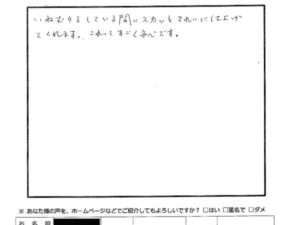 いねむりをしている間にスカッときれいに仕上げ
てくれます。これってすごく楽です。
※ あなた様の声を、ホームページなどでご紹介してもよろしいですか？ □はい □匿名で □ダメ
お 名 前